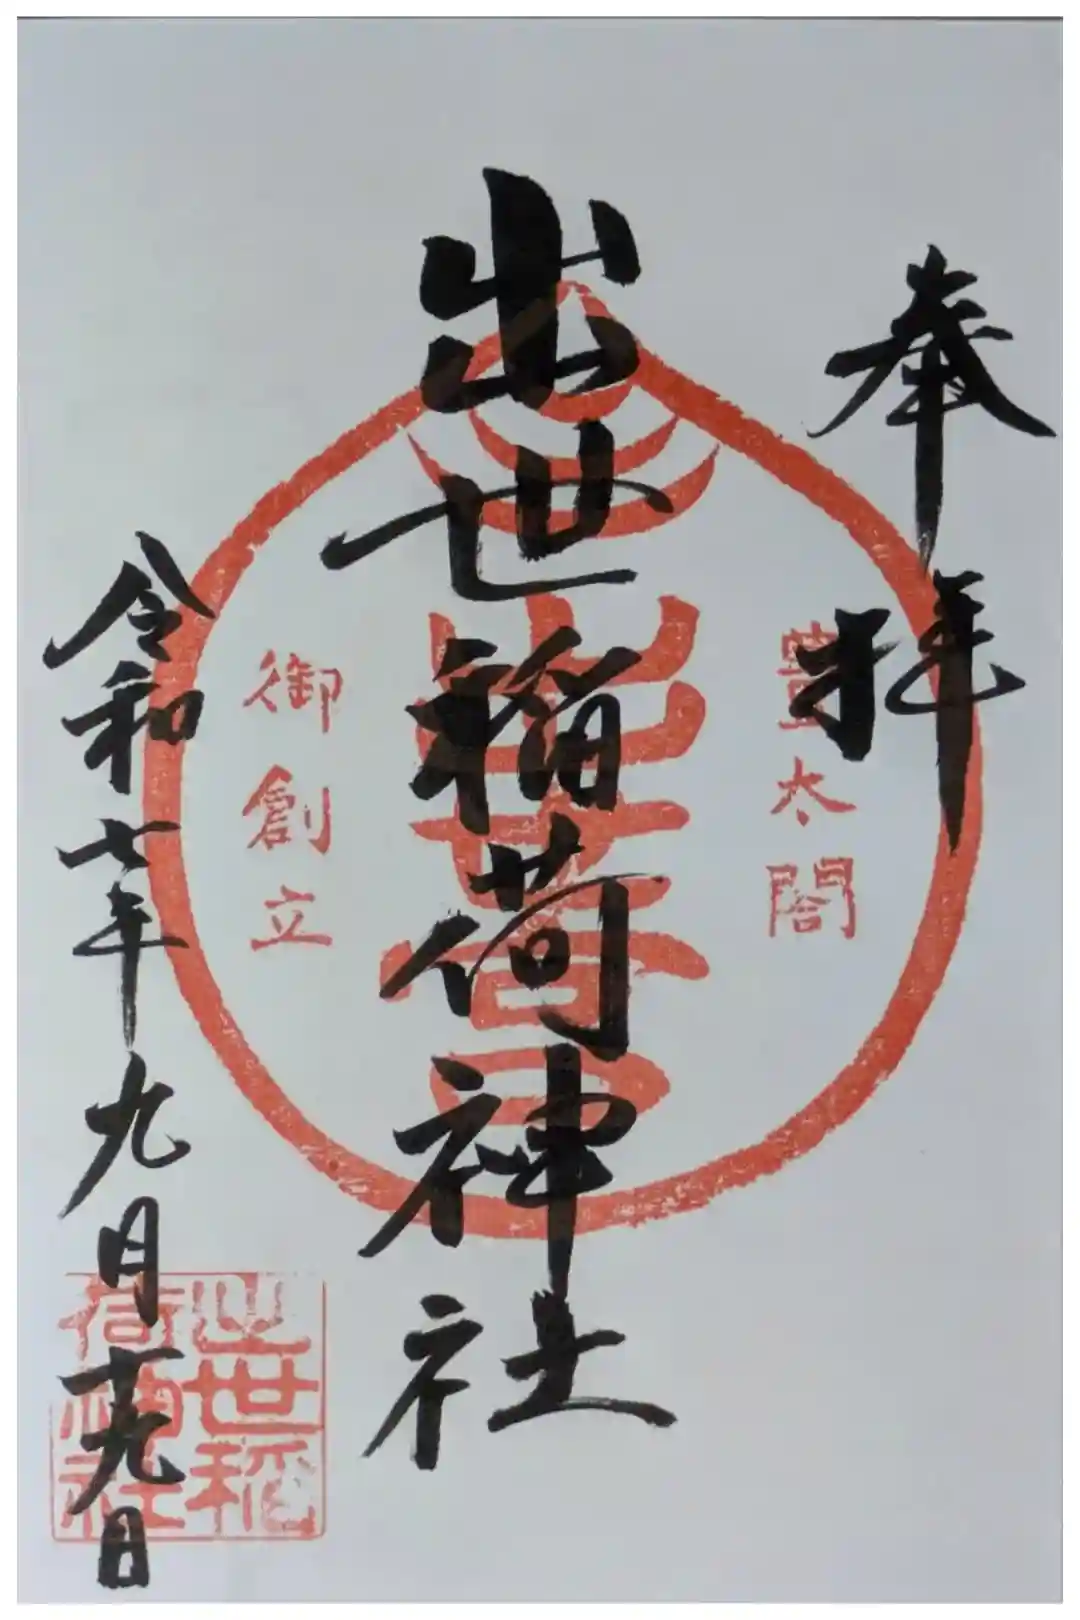 奉拝
豊太閤
出世稲荷神社
御創立
令和七年九月十九日
出世稲
荷神社